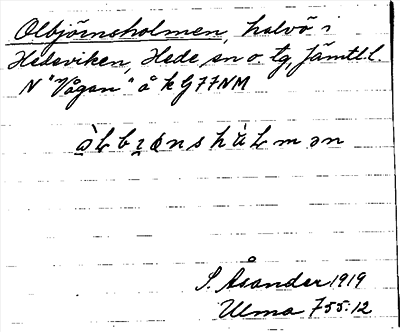 Olbjörnsholmen, halvö i
Hedeviken, Hede sn o. tg, Jämtl.l.
N "Vågan" å k G77NM
S. Åsander 1919
Ulma 755:12